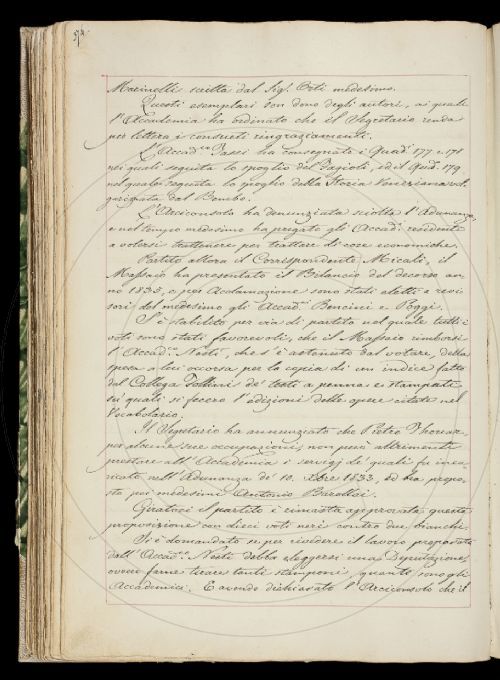 Marinelli scritta dal Sig.r Orti medesimo.
Questi esemplari son dono degli autori, ai quali
l'Accademia ha ordinato che il Segretario renda
per lettera i consueti ringraziamenti.
L'Accad.co ha consegnati i Quad. 177 e 178
nei quali seguita lo spoglio del Fagioli, ed il Quad. 179
nel quale seguita lo spoglio della Storia Veneziana vol
garizzata dal Bembo.
L'Arciconsolo ha denunziata sciolta l'Adunanza,
e nel tempo medesimo ha pregato gli Accad.ci residenti
a volersi trattenere per trattare di cose economiche.
Partito allora il Corrispondente Micali, il
Massaio ha presentato il Bilancio del decorso an
no 1833, e per Acclamazione sono stati eletti a revi
sori del medesimo gli Accad.ci Bencini e Poggi.
S'è stabilito per via di partito nel quale tutti i
voti sono stati favorevoli, che il Massaio rimborsi
l'Accad.co Nesti, che s'è astenuto dal votare, della
spesa a lui occorsa per la copia di un indice fatto
dal Collega Follini de' testi a penna e stampati
su' quali si fecero l'edizioni delle opere citate nel
Vocabolario.
Il Segretario ha annunziato che Pietro Thouar
per alcune sue occupazioni, non può altrimenti
prestare all'Accademia i servigj de' quali fu inca
ricato nell'Adunanza de' 10. Xbre 1833, ed ha propo
sto pei medesimi Antonio Barattai.
Girato il partito è rimasta approvata questa
proposizione con dieci voti neri contro due bianchi.
Si è domandato se per rivedere il lavoro preparato
dall'Accad.co Nesti debba eleggersi una Deputazione,
ovvero farne tirare tanti stamponi, quanti sono gli
Accademici. E avendo dichiarato l'Arciconsolo che il